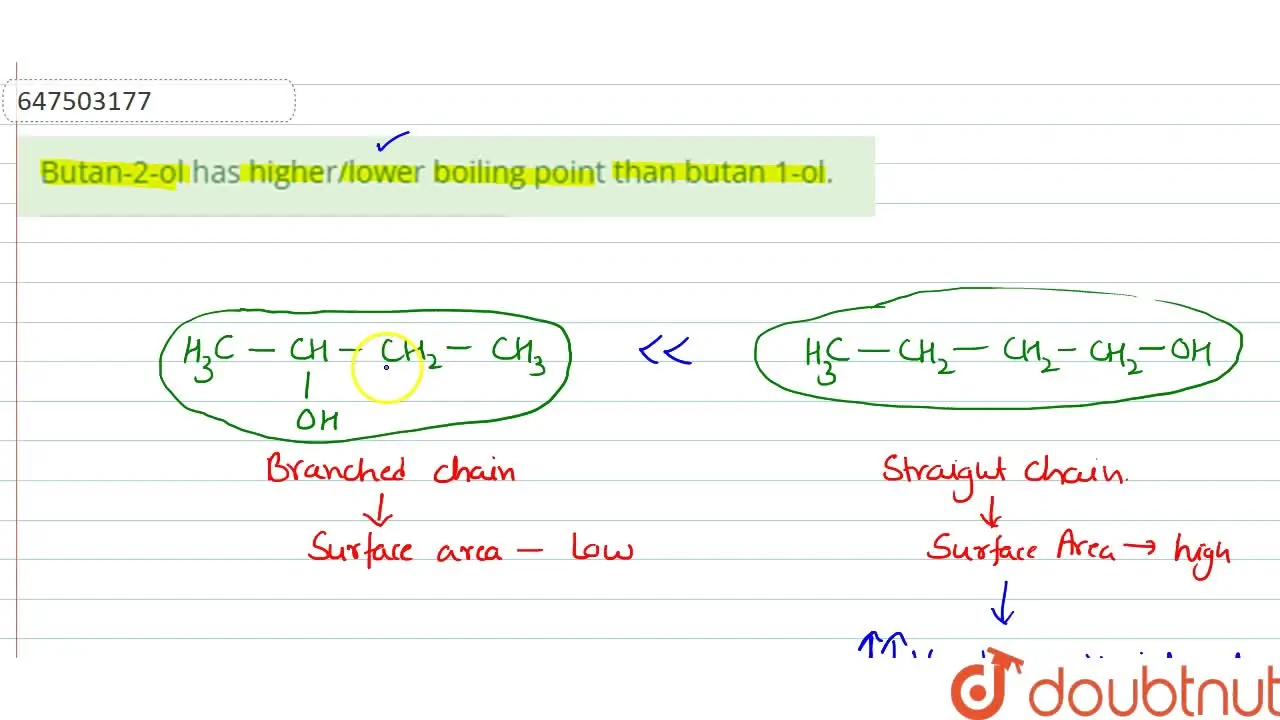 647503177
Butan-2-ol has higher/lower boiling point than butan 1-ol.
H₃C — CH — CH₂ — CH₃ << H₃C — CH₂ — CH₂ — CH₂ — OH
|
OH
Branched chain Straight chain.
↓ ↓
Surface area — low Surface Area → high
↓
↑↑
doubtnut